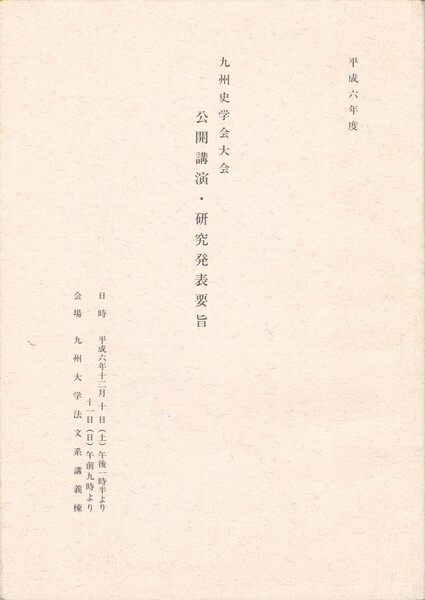 平成六年度
九州史学会大会
公開講演・研究発表要旨
日時 平成六年十二月 十日(土)午後一時半より
十一日(日)午前九時より
会場 九州大学法文系講義棟